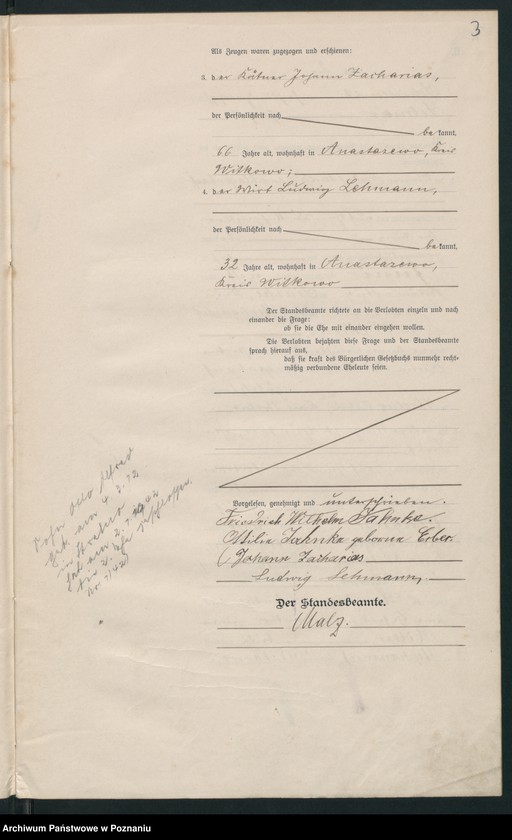 3
Als Zeugen waren zugezogen und erschienen:
3. der Kätner Johann Zacharias,
der Persönlichkeit nach
be kannt,
66 Jahre alt, wohnhaft in Anastazewo, Kreis
Witkowo;
4. der Wirt Ludwig Lehmann,
der Persönlichkeit nach
be kannt,
32 Jahre alt, wohnhaft in Anastazewo,
Kreis Witkowo
Der Standesbeamte richtete an die Verlobten einzeln und nach
einander die Frage:
ob sie die Ehe mit einander eingehen wollen.
Die Verlobten bejahten diese Frage und der Standesbeamte
sprach hierauf aus,
daß sie kraft des Bürgerlichen Gesetzbuchs nunmehr recht-
mäßig verbundene Eheleute seien.
Vorgelesen, genehmigt und unterschrieben.
Friedrich Wilhelm Jahnke.
Ottilie Jahnke geborene Erber.
Johann Zacharias
Ludwig Lehmann,
Der Standesbeamte.
Malz.
Sohn Otto
am 4. 3. 12
in
am 2. 7. 1942
Archiwum Państwowe w Poznaniu